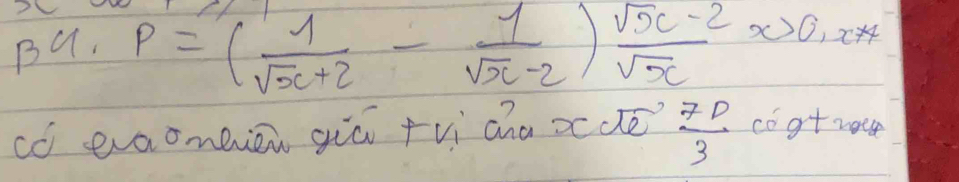 B4. P = (1/(√x+2) - 1/(√x-2)) (√x-2)/√x x>0, x≠4
có bao nhiêu giá trị của x để 7P/3 có gt nguyên